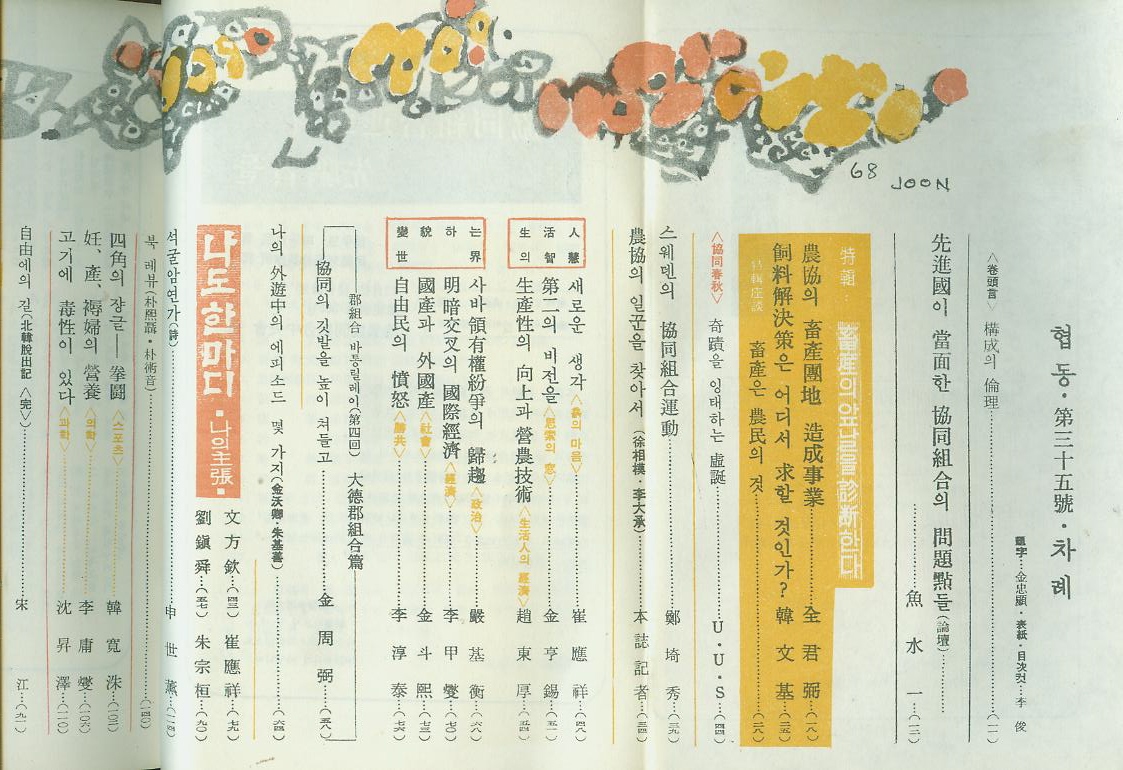 68 JOON
협동·第三十五號·차례
題字…金忠顯·表紙·目次컷…李 俊
〈卷頭言〉 構成의 倫理…(一一)
先進國이 當面한 協同組合의 問題點들(論壇)…
…魚 水 一…(一二)
特輯 畜産의 앞날을 診斷한다
農協의 畜産團地 造成事業…全 君 弼…(一八)
飼料解決策은 어디서 求할 것인가? 韓 文 基…(三五)
特輯座談 畜産은 農民의 것…(二八)
〈協同春秋〉 奇蹟을 잉태하는 虛誕…U·U·S…(四四)
스웨덴의 協同組合運動…鄭 埼 秀…(三九)
農協의 일꾼을 찾아서 (徐相模·李大承)…本 誌 記 者…(三四)
人生 活의 智慧
새로운 생각〈흙의 마음〉…崔 應 祥…(四八)
第二의 비전을〈思索의 窓〉…金 亨 錫…(五一)
生産性의 向上과 營農技術〈生活人의 經濟〉趙 東 厚…(五四)
變貌하는 世界
사바領有權紛爭의 歸趨〈政治〉…嚴 基 衡…(六八)
明暗交叉의 國際經濟〈經濟〉…李 甲 燮…(七〇)
國産과 外國産〈社會〉…金 斗 熙…(七三)
自由民의 憤怒〈勝共〉…李 淳 泰…(七六)
郡組合 바통릴레이(第四回) 大德郡組合篇
協同의 깃발을 높이 쳐들고…金 周 弼…(五八)
나의 外遊中의 에피소드 몇 가지(金沃卿·朱基善)…(六四)
나도 한마디·나의 主張·
文 方 欽…(四三) 崔 應 祥…(七九)
劉 鎭 舜…(五七) 朱 宗 桓…(九〇)
석굴암연가(詩)…申 世 薰…(一一四)
북 레뷰(朴熙聂·朴術音)…(一四〇)
四角의 장글—拳鬪〈스포츠〉…韓 寬 洙…(一〇三)
妊、產、褥婦의 營養〈의학〉…李 庸 燮…(一〇六)
고기에 毒性이 있다〈과학〉…沈 昇 澤…(一一〇)
自由에의 길(北韓脫出記〈完〉)…宋 江…(九一)